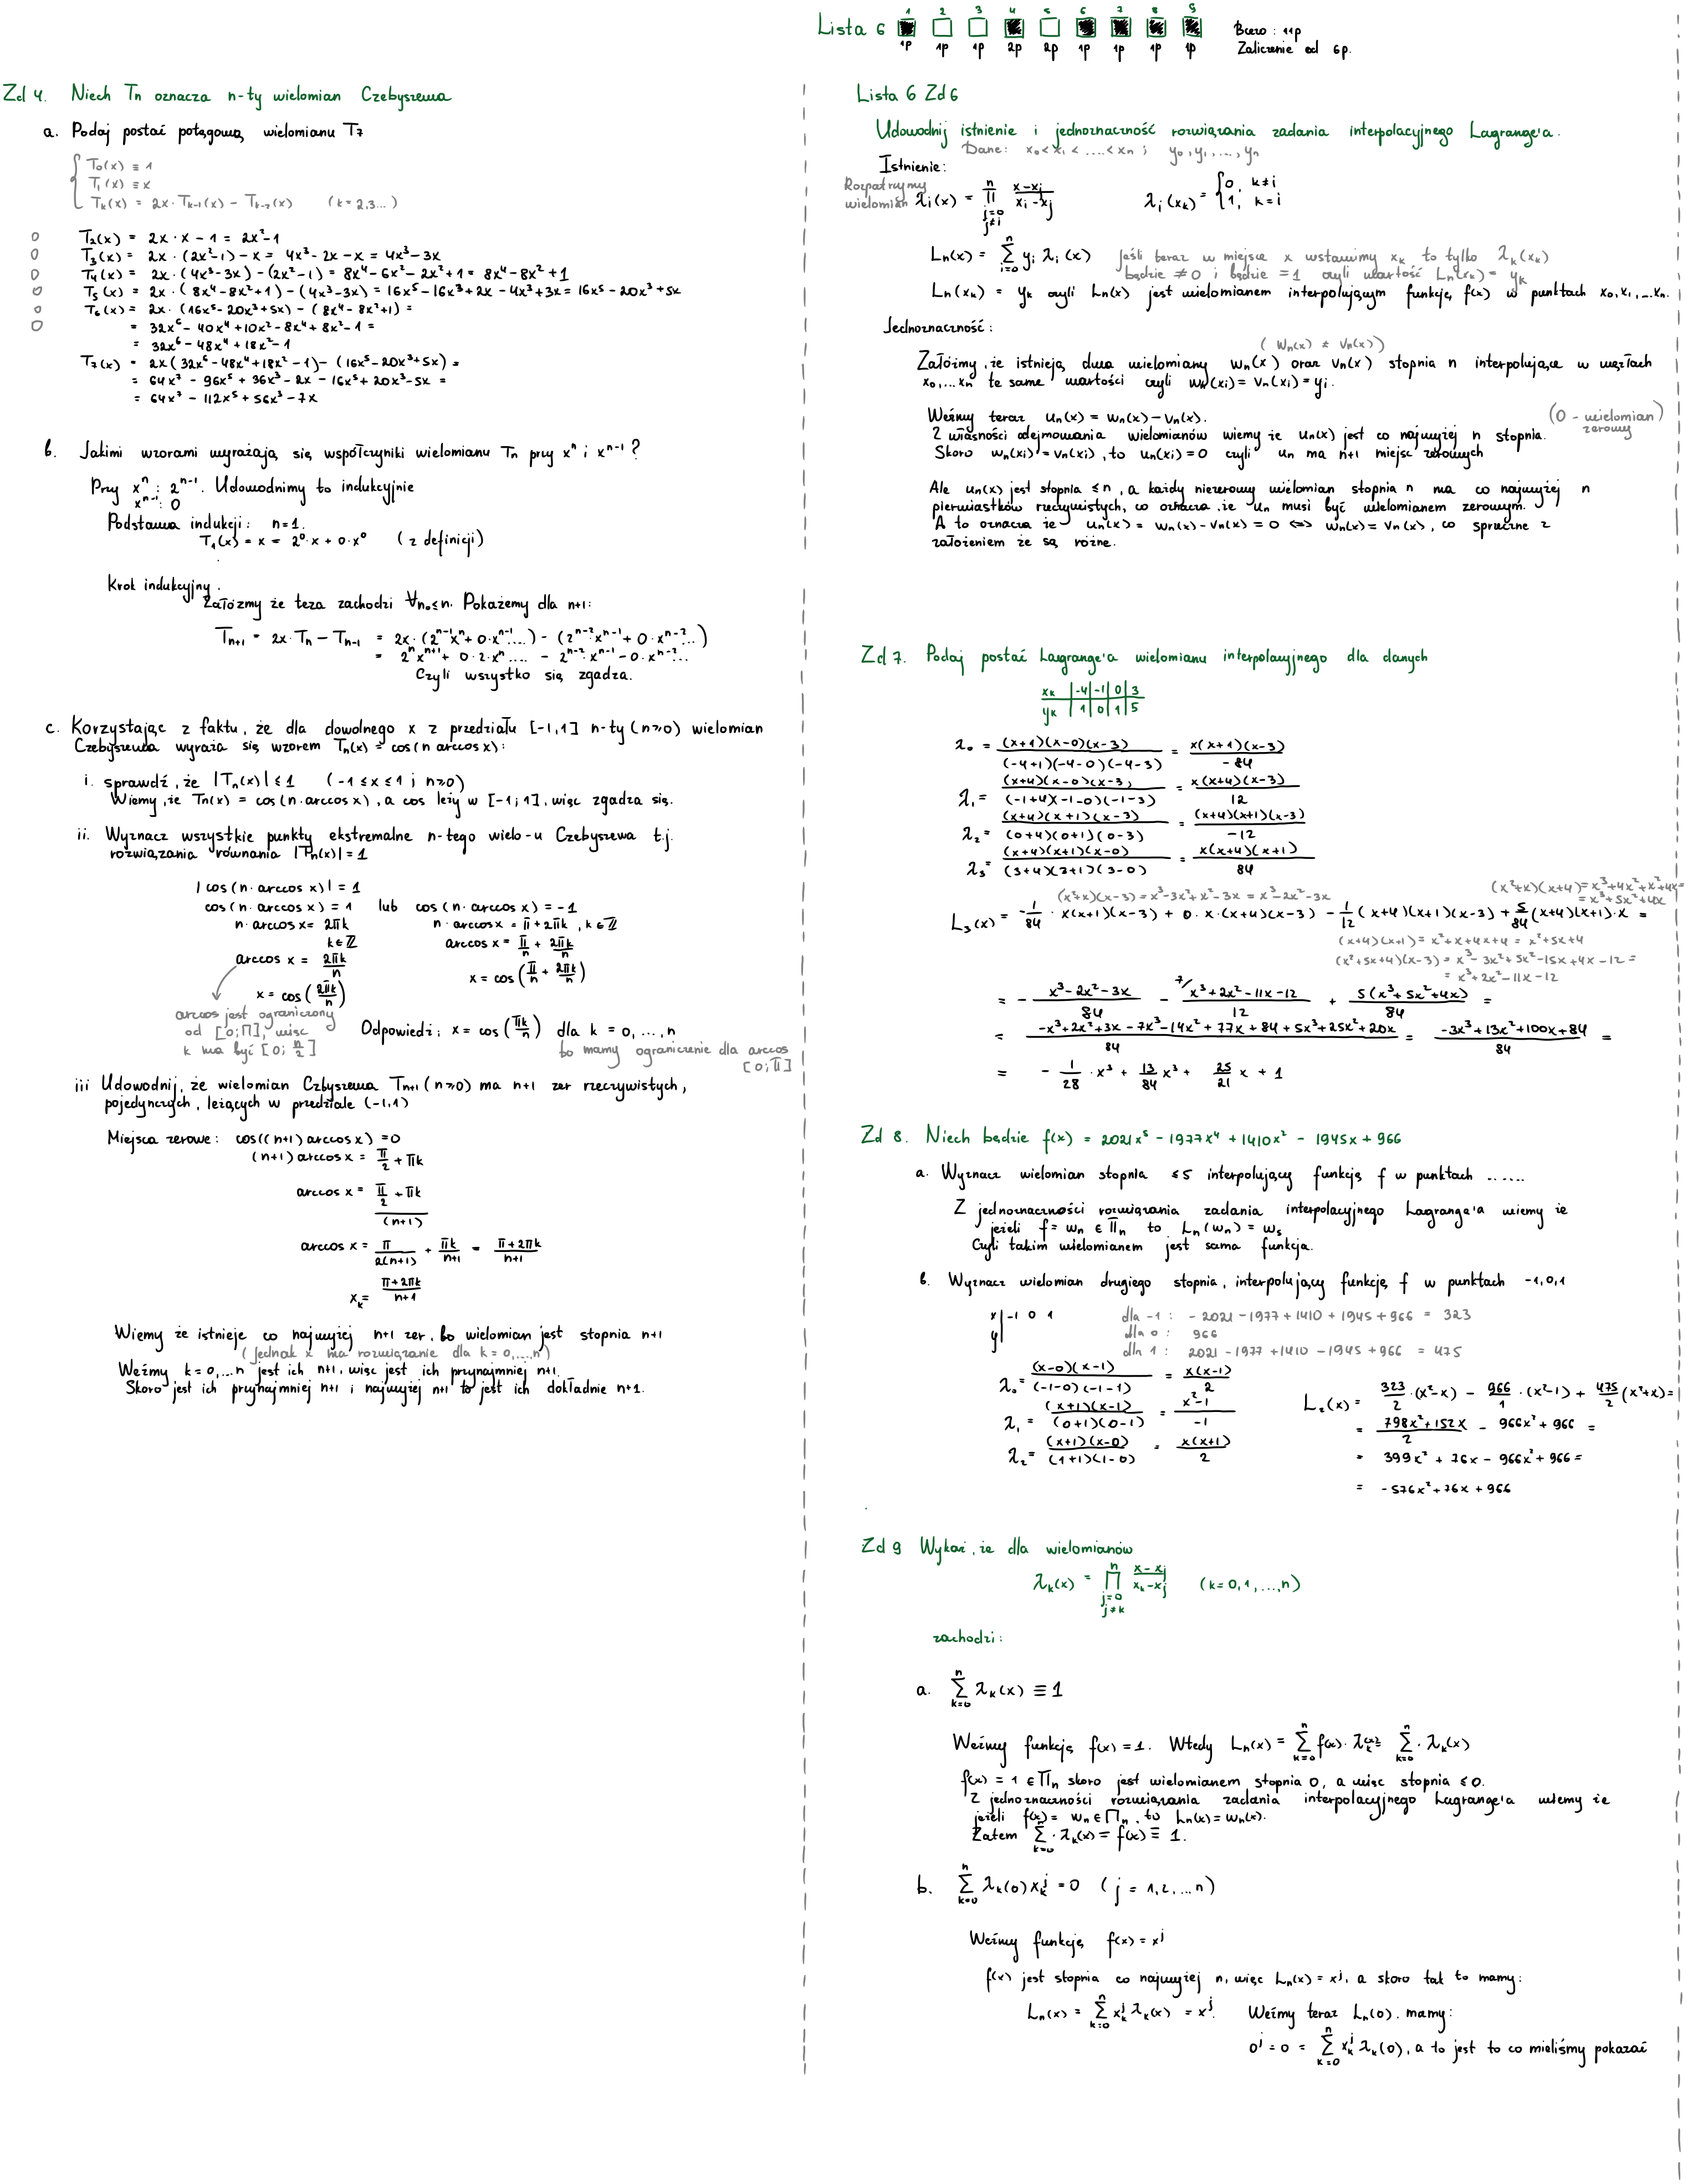 Lista 6
1 2 3 4 5 6 7 8 9
1p 1p 1p 2p 2p 1p 1p 1p 1p
Bczo : 11p
Zaliczenie od 6p.
Zd 4. Niech Tn oznacza n-ty wielomian Czebyszewa
a. Podaj postać potęgową wielomianu T₇
T₀(x) ≡ 1
T₁(x) ≡ x
Tₖ(x) = 2x·Tₖ₋₁(x) - Tₖ₋₂(x) (k=2,3...)
T₂(x) = 2x · x - 1 = 2x²-1
T₃(x) = 2x · (2x²-1) - x = 4x³-2x-x = 4x³-3x
T₄(x) = 2x·(4x³-3x) - (2x²-1) = 8x⁴-6x²-2x²+1 = 8x⁴-8x²+1
T₅(x) = 2x·(8x⁴-8x²+1) - (4x³-3x) = 16x⁵-16x³+2x-4x³+3x = 16x⁵-20x³+5x
T₆(x) = 2x·(16x⁵-20x³+5x) - (8x⁴-8x²+1) =
= 32x⁶-40x⁴+10x²-8x⁴+8x²-1 =
= 32x⁶-48x⁴+18x²-1
T₇(x) = 2x(32x⁶-48x⁴+18x²-1) - (16x⁵-20x³+5x) =
= 64x⁷-96x⁵+36x³-2x-16x⁵+20x³-5x =
= 64x⁷-112x⁵+56x³-7x
b. Jakimi wzorami wyrażają się współczyniki wielomianu Tn przy xⁿ i xⁿ⁻¹?
Przy xⁿ : 2ⁿ⁻¹. Udowodnimy to indukcyjnie
xⁿ⁻¹: 0
Podstawa indukcji: n=1.
T₁(x) = x = 2⁰·x + 0·x⁰ (z definicji)
Krok indukcyjny.
Załóżmy że teza zachodzi ∀n₀≤n. Pokażemy dla n+1:
Tₙ₊₁ = 2x·Tₙ - Tₙ₋₁ = 2x·(2ⁿ⁻¹xⁿ + 0·xⁿ⁻¹....) - (2ⁿ⁻²xⁿ⁻¹ + 0·xⁿ⁻²...)
= 2ⁿxⁿ⁺¹ + 0·2·xⁿ.... - 2ⁿ⁻²·xⁿ⁻¹ - 0·xⁿ⁻²...
Czyli wszystko się zgadza.
c. Korzystając z faktu, że dla dowolnego x z przedziału [-1,1] n-ty (n≥0) wielomian
Czebyszewa wyraża się wzorem Tₙ(x) = cos(n arccos x):
i. sprawdź, że |Tₙ(x)| ≤ 1 (-1≤x≤1 i n≥0)
Wiemy, że Tn(x) = cos(n·arccos x), a cos leży w [-1;1], więc zgadza się.
ii. Wyznacz wszystkie punkty ekstremalne n-tego wielo-u Czebyszewa t.j.
rozwiązania równania |Tₙ(x)| = 1
|cos(n·arccos x)| = 1
cos(n·arccos x) = 1 lub cos(n·arccos x) = -1
n·arccos x = 2πk n·arccos x = π+2πk, k∈ℤ
k∈ℤ arccos x = π/n + 2πk/n
arccos x = 2πk/n x = cos(π/n + 2πk/n)
x = cos(2πk/n)
arccos jest ograniczony
od [0;π], więc
k ma być [0; n/2]
Odpowiedź: x = cos(πk/n) dla k = 0, ..., n
bo mamy ograniczenie dla arccos
[0;π]
iii Udowodnij, że wielomian Czbyszewa Tₙ₊₁ (n≥0) ma n+1 zer rzeczywistych,
pojedynczych, leżących w przedziale (-1,1)
Miejsca zerowe: cos((n+1) arccos x) = 0
(n+1) arccos x = π/2 + πk
arccos x = (π/2 + πk)/(n+1)
arccos x = π/2(n+1) + πk/n+1 = π+2πk/n+1
xₖ = π+2πk/n+1
Wiemy że istnieje co najwyżej n+1 zer, bo wielomian jest stopnia n+1
(jednak x ma rozwiązanie dla k=0,...,n)
Weźmy k=0,...n jest ich n+1, więc jest ich przynajmniej n+1.
Skoro jest ich przynajmniej n+1 i najwyżej n+1 to jest ich dokładnie n+1.
Lista 6 Zd 6
Udowodnij istnienie i jednoznaczność rozwiązania zadania interpolacyjnego Lagrange'a.
Dane: x₀<x₁<....<xₙ ; y₀,y₁,...,yₙ
Istnienie:
Rozpatrujmy
wielomian λᵢ(x) = ∏ⁿ j=0 j≠i (x-xⱼ)/(xᵢ-xⱼ) λᵢ(xₖ) = {0, k≠i
1, k=i
Lₙ(x) = Σⁿ i=0 yᵢ λᵢ(x) Jeśli teraz w miejsce x wstawimy xₖ to tylko λₖ(xₖ)
będzie ≠0 i będzie =1 czyli wartość Lₙ(xₖ) = yₖ
Lₙ(xₖ) = yₖ czyli Ln(x) jest wielomianem interpolującym funkcję f(x) w punktach x₀,x₁,...xₙ.
Jednoznaczność:
(wₙ(x) ≠ vₙ(x))
Załóżmy, że istnieją dwa wielomiany wₙ(x) oraz vₙ(x) stopnia n interpolujące w węzłach
x₀,...xₙ te same wartości czyli wₙ(xᵢ) = vₙ(xᵢ) = yᵢ.
Weźmy teraz uₙ(x) = wₙ(x) - vₙ(x).
(0 - wielomian)
zerowy
Z własności odejmowania wielomianów wiemy że uₙ(x) jest co najwyżej n stopnia.
Skoro wₙ(xᵢ) = vₙ(xᵢ), to uₙ(xᵢ) = 0 czyli uₙ ma n+1 miejsc zerowych
Ale uₙ(x) jest stopnia ≤n, a każdy niezerowy wielomian stopnia n ma co najwyżej n
pierwiastków rzeczywistych, co oznacza, że uₙ musi być wielomianem zerowym.
A to oznacza że uₙ(x) = wₙ(x) - vₙ(x) = 0 <=> wₙ(x) = vₙ(x), co sprzeczne z
założeniem że są różne.
Zd 7. Podaj postać Lagrange'a wielomianu interpolacyjnego dla danych
xₖ | -4 | -1 | 0 | 3
yₖ | 1 | 0 | 1 | 5
λ₀ = (x+1)(x-0)(x-3)/(-4+1)(-4-0)(-4-3) = x(x+1)(x-3)/-84
λ₁ = (x+4)(x-0)(x-3)/(-1+4)(-1-0)(-1-3) = x(x+4)(x-3)/12
λ₂ = (x+4)(x+1)(x-3)/(0+4)(0+1)(0-3) = (x+4)(x+1)(x-3)/-12
λ₃ = (x+4)(x+1)(x-0)/(3+4)(3+1)(3-0) = x(x+4)(x+1)/84
(x²+x)(x-3) = x³-3x²+x²-3x = x³-2x²-3x
(x²+x)(x+4) = x³+4x²+x²+4x =
= x³+5x²+4x
L₃(x) = -1/84 · x(x+1)(x-3) + 0·x·(x+4)(x-3) - 1/12 (x+4)(x+1)(x-3) + 5/84 (x+4)(x+1)·x =
(x+4)(x+1) = x²+x+4x+4 = x²+5x+4
(x²+5x+4)(x-3) = x³-3x²+5x²-15x+4x-12 =
= x³+2x²-11x-12
= - x³-2x²-3x/84 - 7/ x³+2x²-11x-12/12 + 5(x³+5x²+4x)/84 =
= -x³+2x²+3x-7x³-14x²+77x+84+5x³+25x²+20x/84 = -3x³+13x²+100x+84/84 =
= -1/28 ·x³ + 13/84 x³ + 25/21 x + 1
Zd 8. Niech będzie f(x) = 2021x⁵ - 1977x⁴ + 1410x² - 1945x + 966
a. Wyznacz wielomian stopnia ≤5 interpolujący funkcję f w punktach ......
Z jednoznaczności rozwiązania zadania interpolacyjnego Lagrange'a wiemy że
jeżeli f = wₙ ∈ Πₙ to Lₙ(wₙ) = w₅
Czyli takim wielomianem jest sama funkcja.
b. Wyznacz wielomian drugiego stopnia, interpolujący funkcję f w punktach -1,0,1
x | -1 0 1
y |
dla -1: -2021-1977+1410+1945+966 = 323
dla 0: 966
dla 1: 2021-1977+1410-1945+966 = 475
λ₀ = (x-0)(x-1)/(-1-0)(-1-1) = x(x-1)/2
λ₁ = (x+1)(x-1)/(0+1)(0-1) = x²-1/-1
λ₂ = (x+1)(x-0)/(1+1)(1-0) = x(x+1)/2
L₂(x) = 323/2 ·(x²-x) - 966/1 ·(x²-1) + 475/2 (x²+x) =
= 798x²+152x/2 - 966x²+966 =
= 399x² + 76x - 966x²+966 =
= -576x²+76x+966
Zd 9 Wykaż, że dla wielomianów
λₖ(x) = ∏ⁿ j=0 j≠k (x-xⱼ)/(xₖ-xⱼ) (k=0,1,...,n)
zachodzi:
a. Σⁿ k=0 λₖ(x) ≡ 1
Weźmy funkcję f(x) = 1. Wtedy Lₙ(x) = Σⁿ k=0 f(x)·λₖ(x) = Σⁿ k=0 ·λₖ(x)
f(x) = 1 ∈ Πₙ skoro jest wielomianem stopnia 0, a więc stopnia ≤0.
Z jednoznaczności rozwiązania zadania interpolacyjnego Lagrange'a wiemy że
jeżeli f(x) = wₙ ∈ Πₙ, to Lₙ(x) = wₙ(x).
Zatem Σⁿ k=0 ·λₖ(x) = f(x) ≡ 1.
b. Σⁿ k=0 λₖ(0) xₖʲ = 0 (j = 1,2,...n)
Weźmy funkcję f(x) = xʲ
f(x) jest stopnia co najwyżej n, więc Lₙ(x) = xʲ, a skoro tak to mamy:
Lₙ(x) = Σⁿ k=0 xₖʲ λₖ(x) = xʲ. Weźmy teraz Lₙ(0). mamy:
0ʲ = 0 = Σⁿ k=0 xₖʲ λₖ(0), a to jest to co mieliśmy pokazać